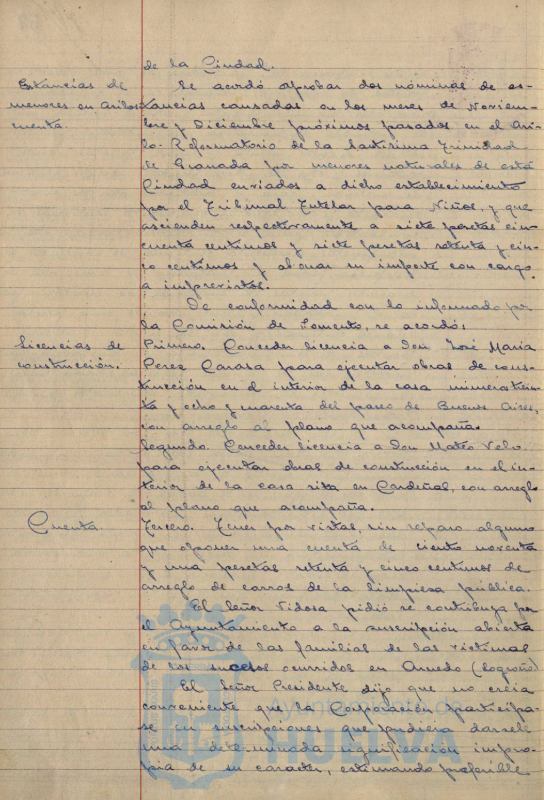 de la Ciudad.
Estancias de
menores en Asilos
cuenta.
Se acordó aprobar dos nóminas de es-
tancias causadas en los meses de Noviem-
bre y Diciembre próximos pasados en el Asi-
lo-Reformatorio de la Santísima Trinidad
de Granada por menores naturales de esta
Ciudad enviados a dicho establecimiento
por el Tribunal Tutelar para Niños, y que
ascienden respectivamente a siete pesetas cin-
cuenta centimos y siete pesetas setenta y cin-
co centimos y abonar su importe con cargo
a imprevistos.
De conformidad con lo informado por
la Comisión de Fomento, se acordó:
Licencias de
construcción.
Primero. Conceder licencia a Don José María
Perez Carasa para ejecutar obras de cons-
trucción en el interior de la casa número trein-
ta y ocho y cuarenta del paseo de Buenos Aires,
con arreglo al plano que acompaña.
Segundo. Conceder licencia a Don Mateo Velo
para ejecutar obras de construcción en el in-
terior de la casa sita en Cardeñas, con arreglo
al plano que acompaña.
Cuenta.
Tercero. Tener por vistas, sin reparo alguno
que oponer una cuenta de ciento noventa
y una pesetas setenta y cinco centimos de
arreglo de carros de la limpieza pública.
El Señor Vidosa pidió se contribuya por
el Ayuntamiento a la suscripción abierta
en favor de las familias de las victimas
de los sucesos ocurridos en Arnedo (Logroño)
El Señor Presidente dijo que no creia
conveniente que la Corporación participa-
se en suscripciones que pudiera darsele
una determinada significación impro-
pia de su caracter, estimando preferible
Ayuntamiento de
HUELVA